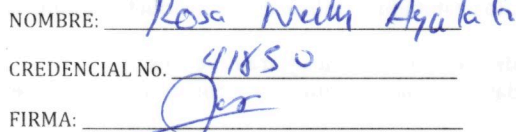 NOMBRE: Rosa Nelly
CREDENCIAL No. 41850
FIRMA: